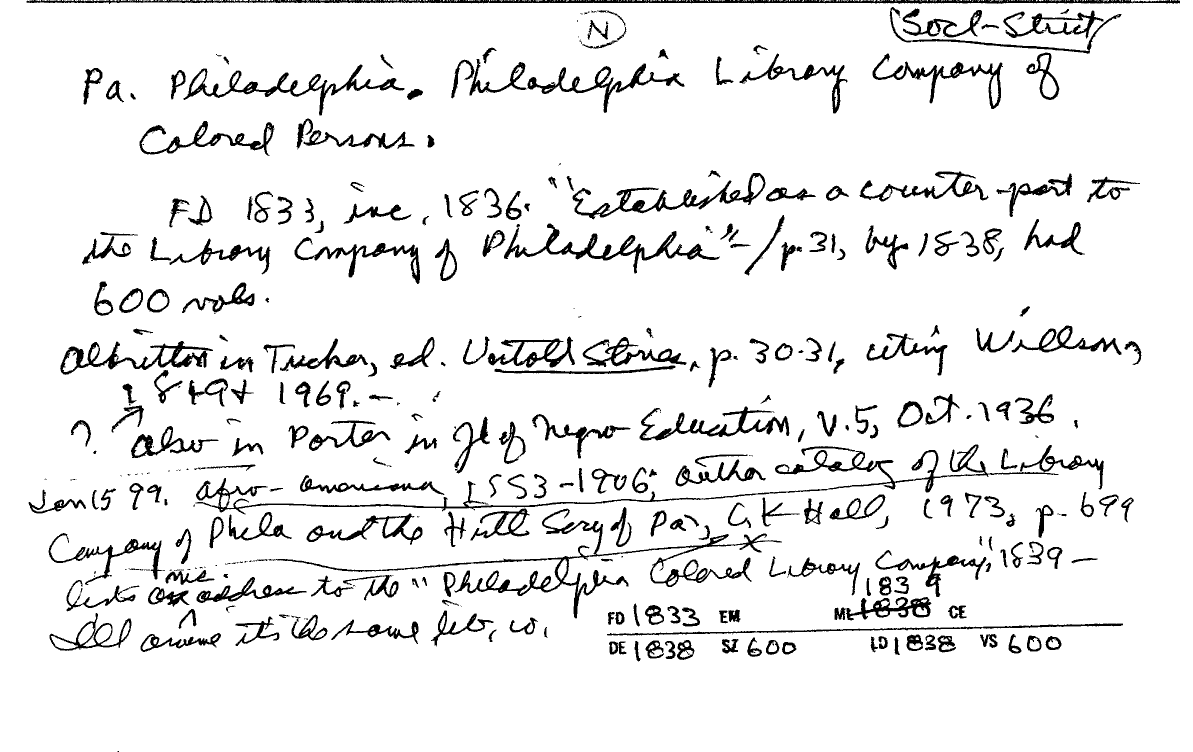 N
Socl-Strict
Pa. Philadelphia. Philadelphia Library Company of
Colored Persons.
FD 1833, inc. 1836. "Established as a counter-part to
the Library Company of Philadelphia"-/p.31, by 1838, had
600 vols.
Albritton in Tucker, ed. Untold Stories, p. 30-31, citing Willson,
1849+ 1969.-
? also in Porter in Jl of Negro Education, V.5, Oct. 1936.
Jan 15 99. Afro-Americana, 1553-1906; author catalog of the Library
Company of Phila and the Histl Socy of Pa., GK Hall, 1973, p. 699
lists an ms. address to the "Philadelphia Colored Library Company," 1839 –
I'll assume it's the same lib. co.
1839
FD 1833 EM ML 1838 CE
DE 1838 SZ 600 LD 1838 VS 600